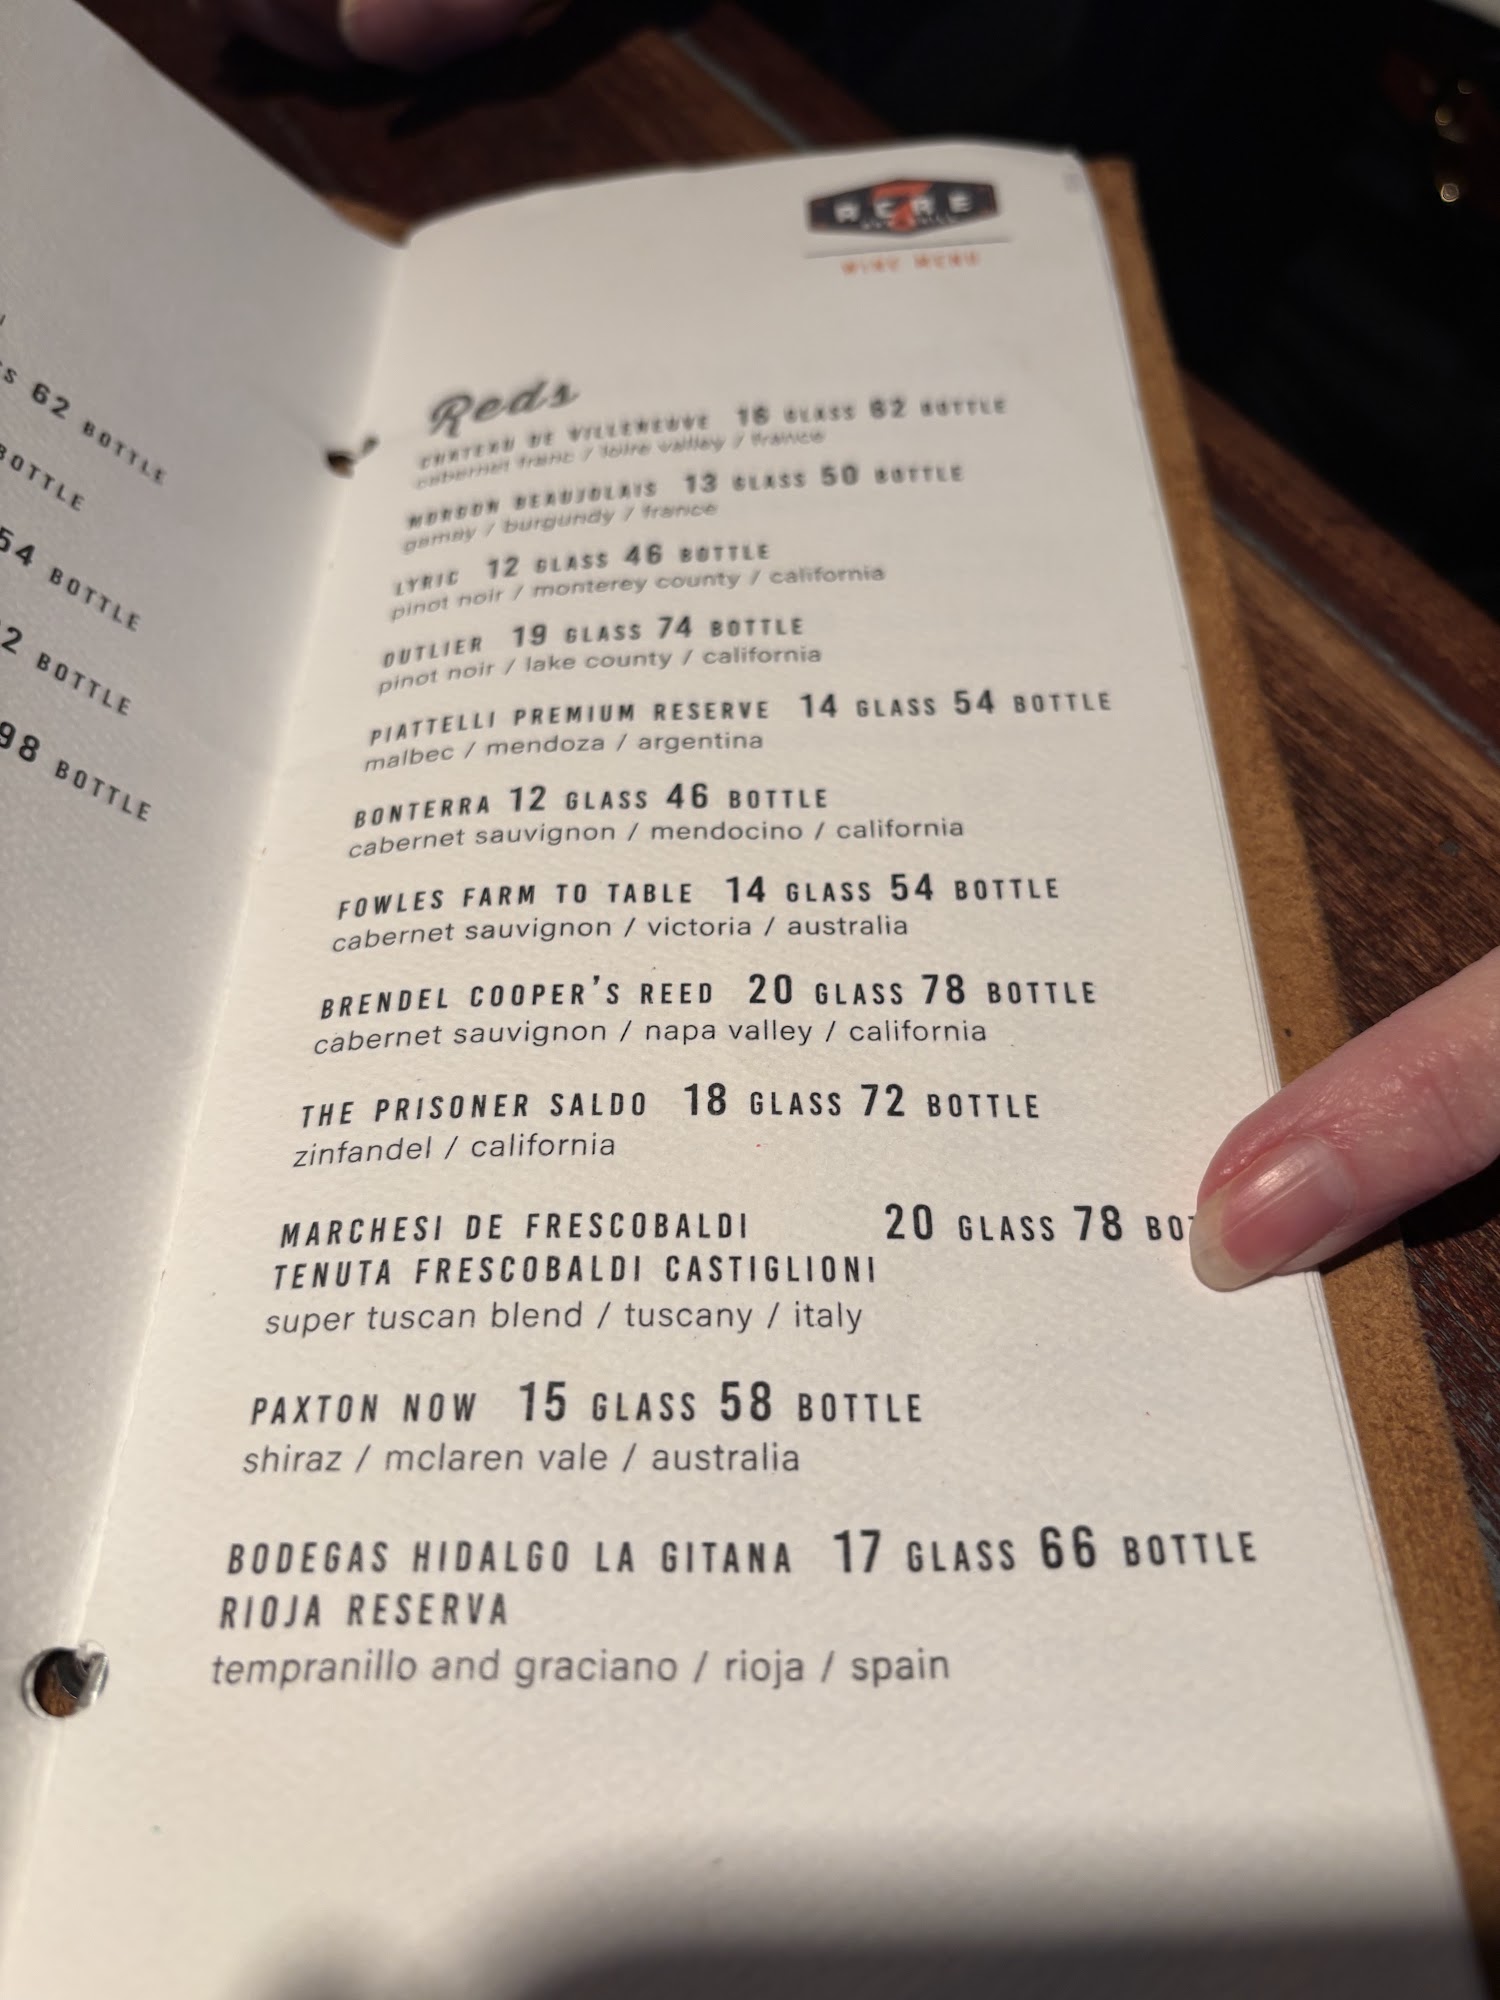 S 62 BOTTLE
BOTTLE
54 BOTTLE
2 BOTTLE
98 BOTTLE
7
ACRE
WINE MENU
Reds
CHATEAU DE VILLENEUVE 16 GLASS 62 BOTTLE
cabernet franc / loire valley / france
MORGON BEAUJOLAIS 13 GLASS 50 BOTTLE
gamay / burgundy / france
LYRIC 12 GLASS 46 BOTTLE
pinot noir / monterey county / california
OUTLIER 19 GLASS 74 BOTTLE
pinot noir / lake county / california
PIATTELLI PREMIUM RESERVE 14 GLASS 54 BOTTLE
malbec / mendoza / argentina
BONTERRA 12 GLASS 46 BOTTLE
cabernet sauvignon / mendocino / california
FOWLES FARM TO TABLE 14 GLASS 54 BOTTLE
cabernet sauvignon / victoria / australia
BRENDEL COOPER'S REED 20 GLASS 78 BOTTLE
cabernet sauvignon / napa valley / california
THE PRISONER SALDO 18 GLASS 72 BOTTLE
zinfandel / california
MARCHESI DE FRESCOBALDI 20 GLASS 78 BOT
TENUTA FRESCOBALDI CASTIGLIONI
super tuscan blend / tuscany / italy
PAXTON NOW 15 GLASS 58 BOTTLE
shiraz / mclaren vale / australia
BODEGAS HIDALGO LA GITANA 17 GLASS 66 BOTTLE
RIOJA RESERVA
tempranillo and graciano / rioja / spain